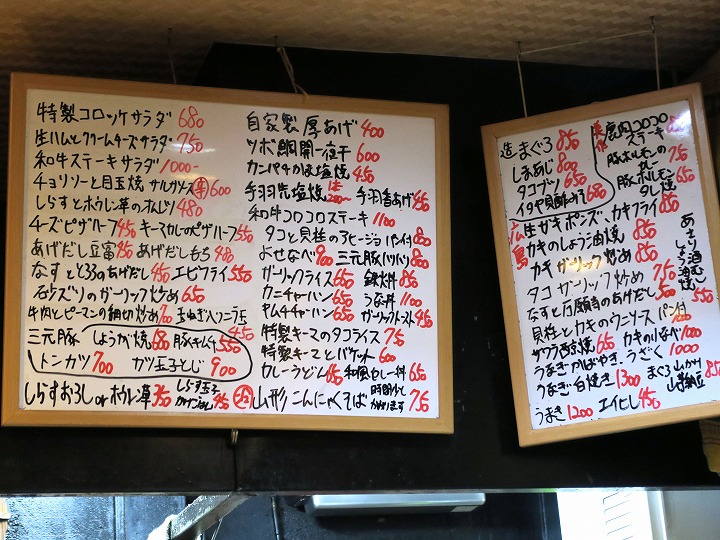 特製コロッケサラダ 680
生ハムとクリームチーズサラダー 750
和牛ステーキサラダ 1000-
チョリソーと目玉焼 サルサソース 辛 600
しらすとホウレン草のオムレツ 480
チーズピザハーフ 450 キーマカレーのピザハーフ 550
あげだし豆富 350 あげだしもち 480
なすとところのあげだし 450 エビフライ 550
砂ズリのガーリック炒め 650
牛肉とピーマンの細切炒め 700 玉ねぎベーコン玉 450
三元豚 しょうが焼 680 豚キムチ 550
トンカツ 700 ガツ玉子とじ 900
しらすおろし or ホウレン草 350 しらす玉子かけごはん 450
自家製厚あげ 400
ツボ鯛開一夜干 600
カンパチかま塩焼 450
手羽先塩焼 手羽香あげ 450
和牛コロコロステーキ 1100
タコと貝柱のアヒージョ パン付 880
よせなべ 900 三元豚(ツバリ) 800
ガーリックライス 650 鉄火丼 850
カニチャーハン 650 うな丼 1100
ヤムチャーハン 650 ガーリックトースト 450
特製キーマのタコライス 750
特製キーマとバケット 600
カレーうどん 650 和風カレー料 650
山形こんにゃくそば 時間少しかかります 750
造 まぐろ 850
しまあじ 800
タコブツ 650
イタヤ貝酢みそ 680
美作 鹿肉コロコロステーキ 850
豚ホルモンの 750
豚ホルモンタレ焼 650
広島 生ガキポンズ、カキフライ 850
カキのしょう油焼 850
カキガーリック炒め 850
タコガーリック炒め 750
あさり酒むし しょう油焼 550
なすと万願寺のあげだし 500
貝柱とカキのウニソース パン付
サワラ西京焼 650 カキ小なべ 1100
うなぎかばやき、うざく 1000
うなぎ白焼き 1300 まぐろ山かけ 山芋納豆 850
うまき 1200 エイヒレ 450